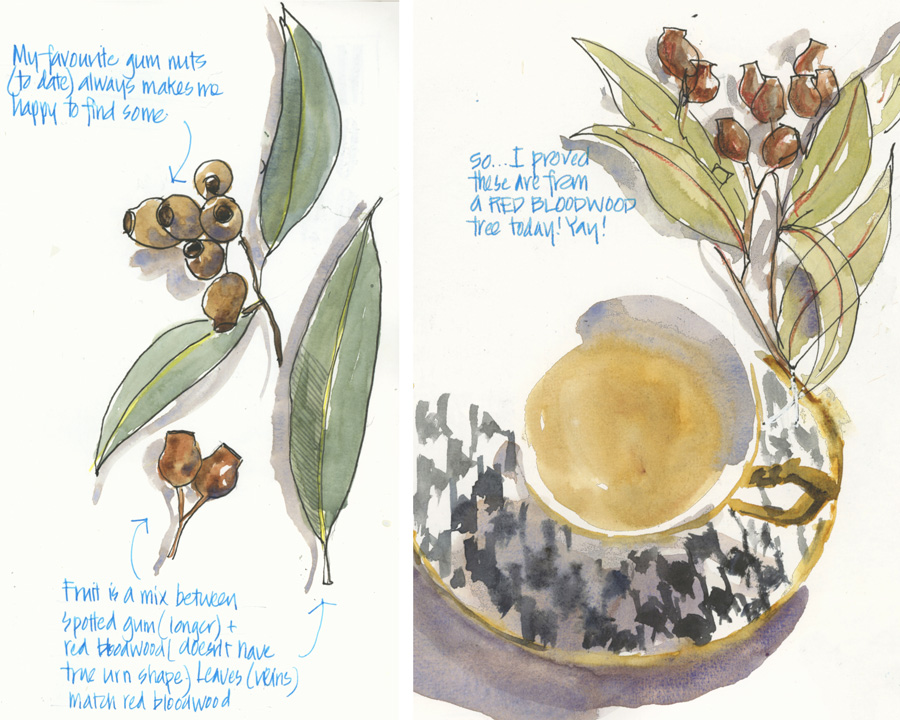 My favourite gum nuts
(to date) always makes me
happy to find some
Fruit is a mix between
spotted gum (longer) +
red bloodwood (doesn't have
true urn shape) Leaves (veins)
match red bloodwood
so...I proved
these are from
a RED BLOODWOOD
tree today! Yay!